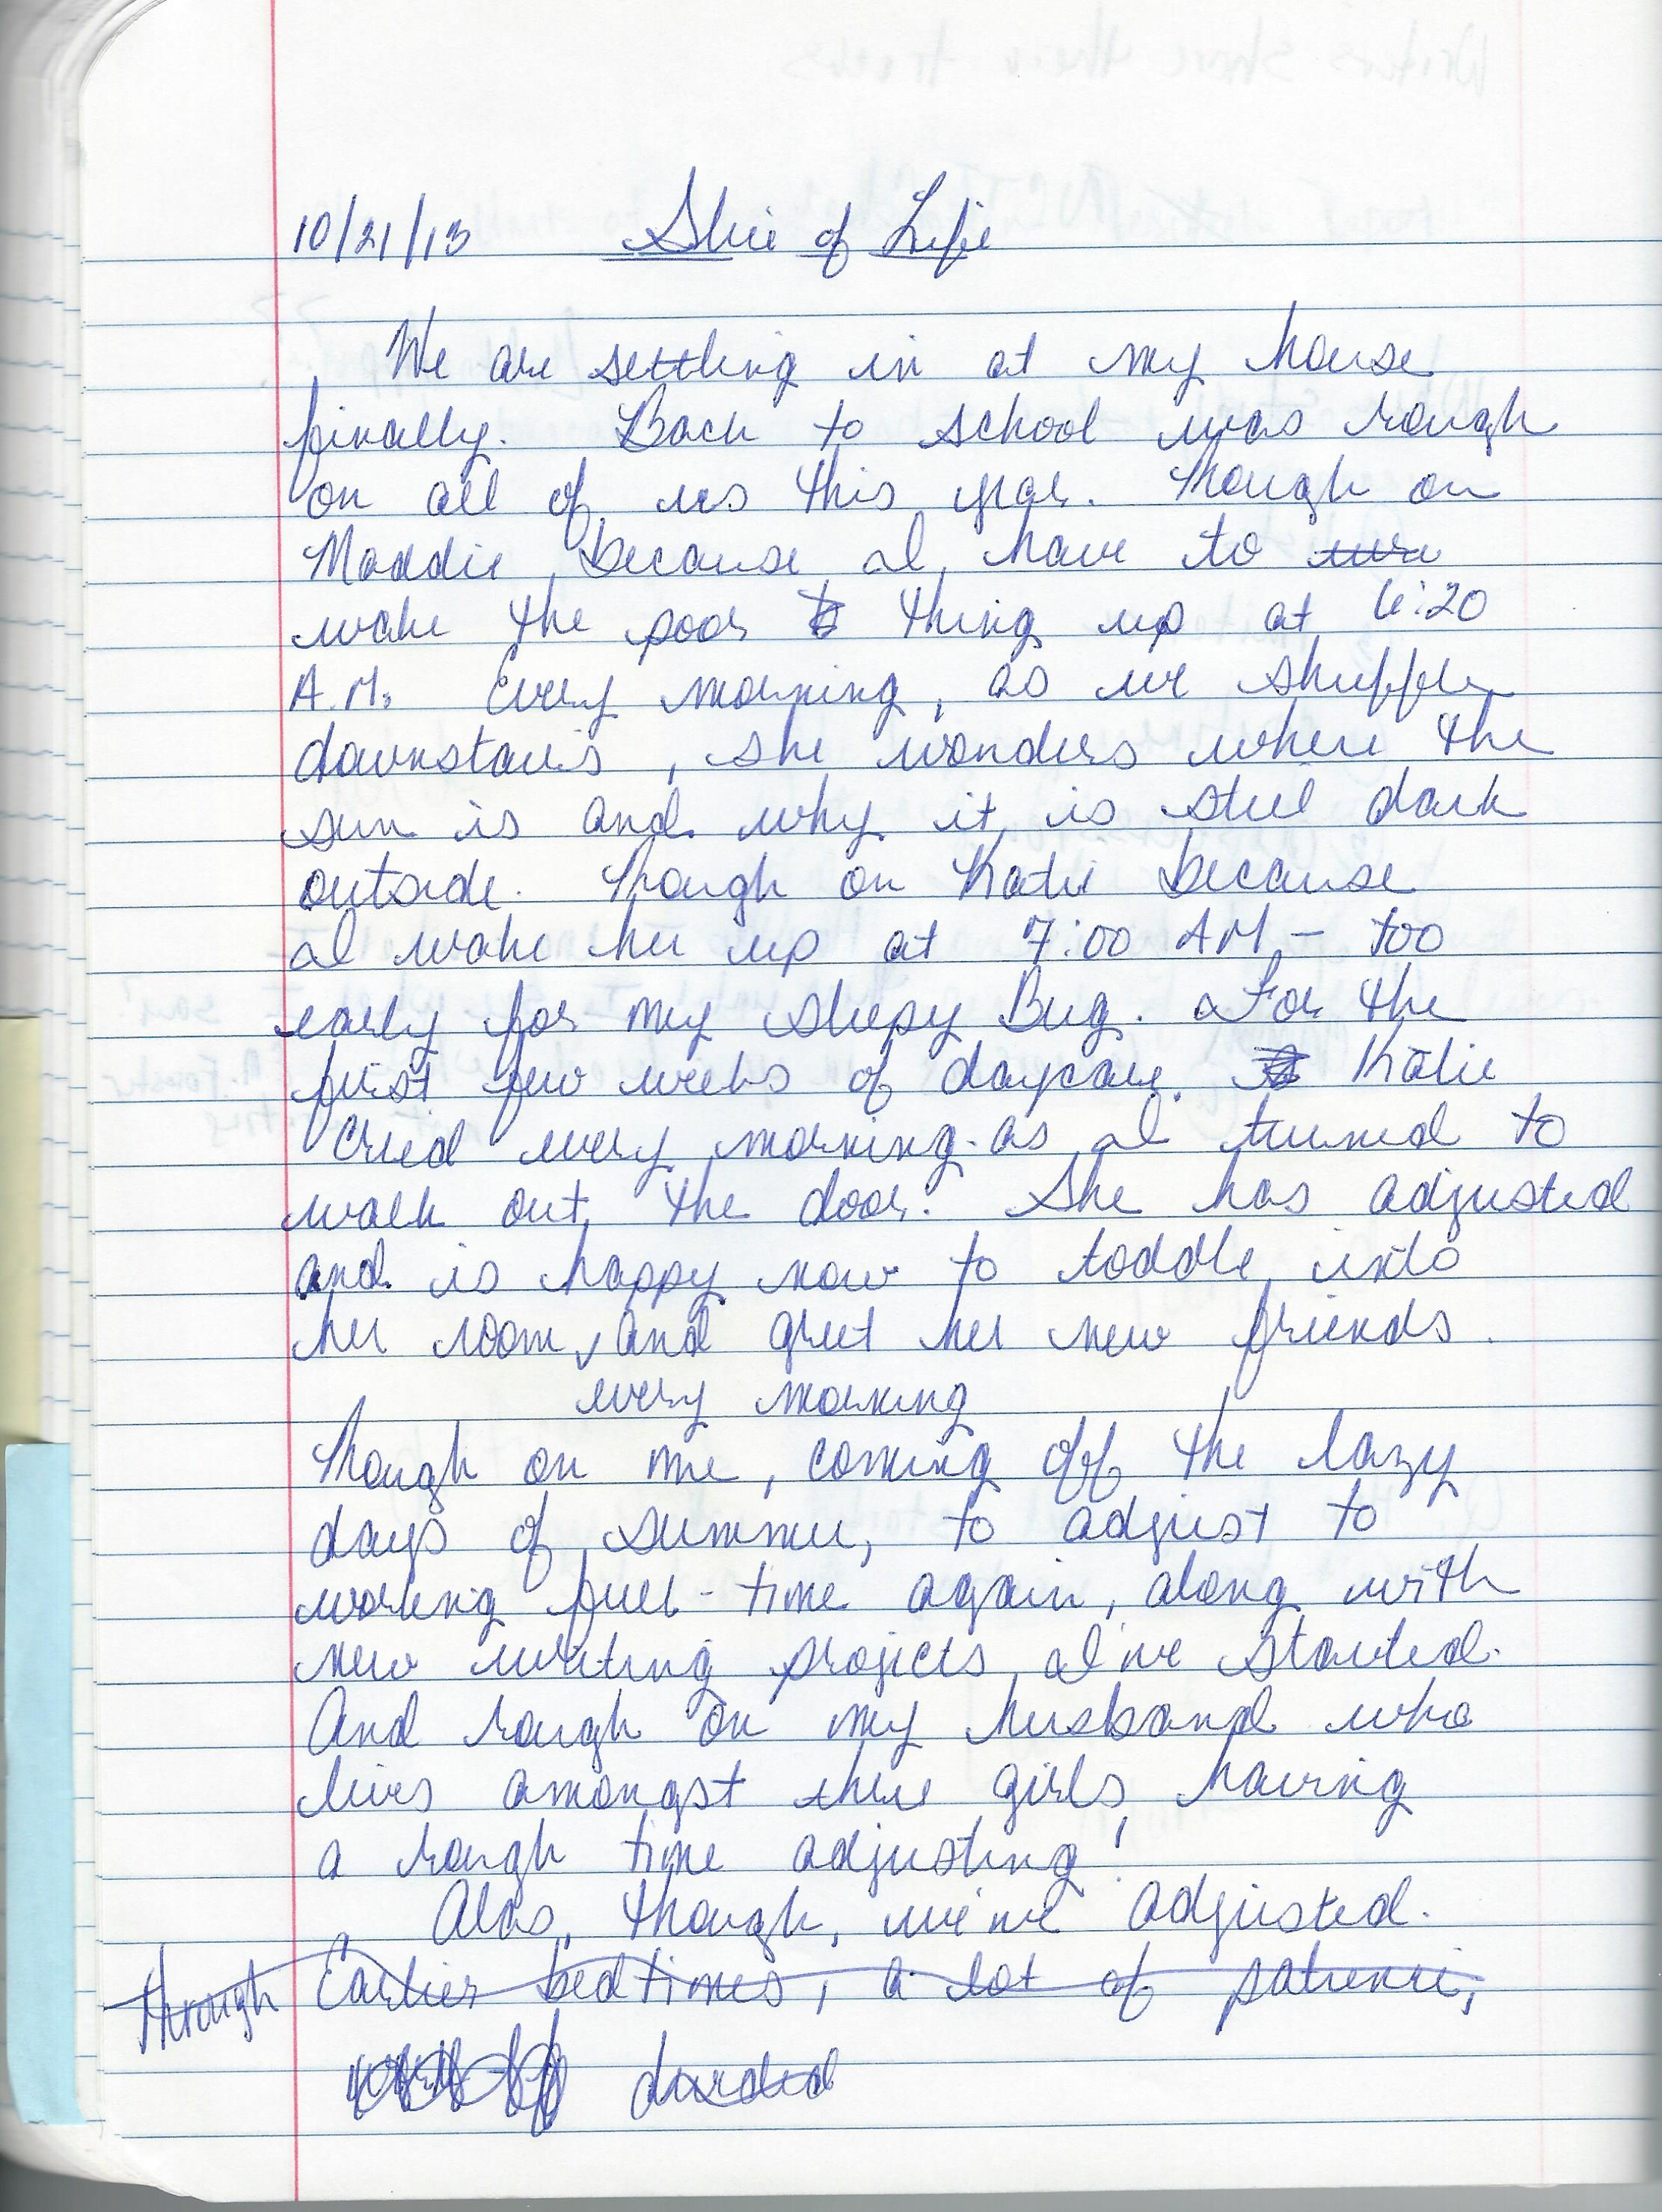 10/21/13 Slice of Life
We are settling in at my house
finally. Back to school was rough
on all of us this year. Rough on
Maddie because I have to
wake the poor thing up at 6:20
A.M. Every morning, as we shuffle
downstairs, she wonders where the
sun is and why it is still dark
outside. Rough on Katie because
I wake her up at 7:00 AM - too
early for my sleepy Bug. For the
first few weeks of daycare Katie
cried every morning as I turned to
walk out the door. She has adjusted
and is happy now to toddle into
her room, and greet her new friends.
every morning
Rough on me, coming off the lazy
days of summer, to adjust to
working full-time again, along with
new writing projects I've started.
And rough on my husband who
lives amongst three girls having
a rough time adjusting!
Alas, though, we've adjusted.
Through Earlier bedtimes, a lot of patience,